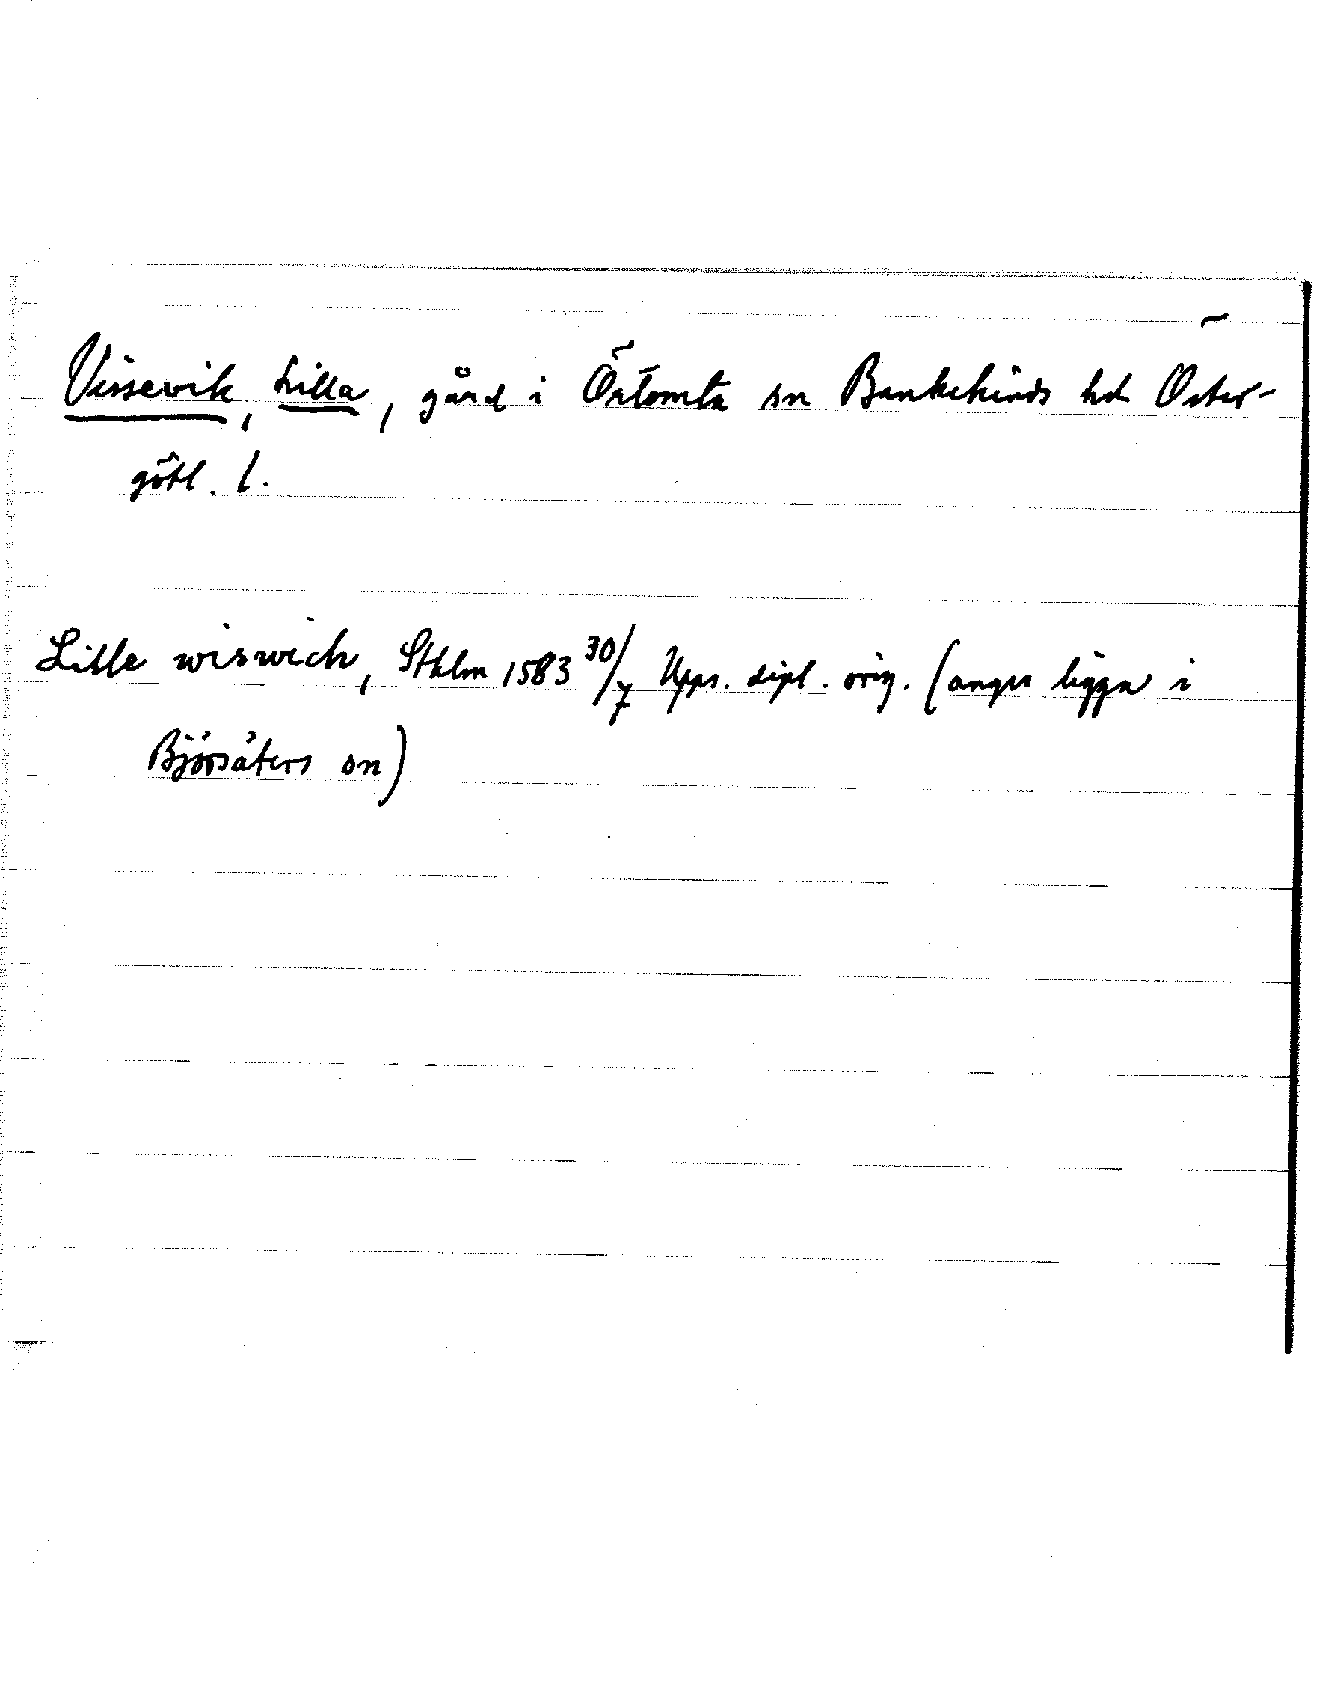 Vissevik, Lilla, gård i Örtomta sn Bankekinds hd Öster-
götl. l.
Litle wiswich, Sthlm 1583 30/7 Upps. dipl. orig. (anges ligga i
Björsäters sn)